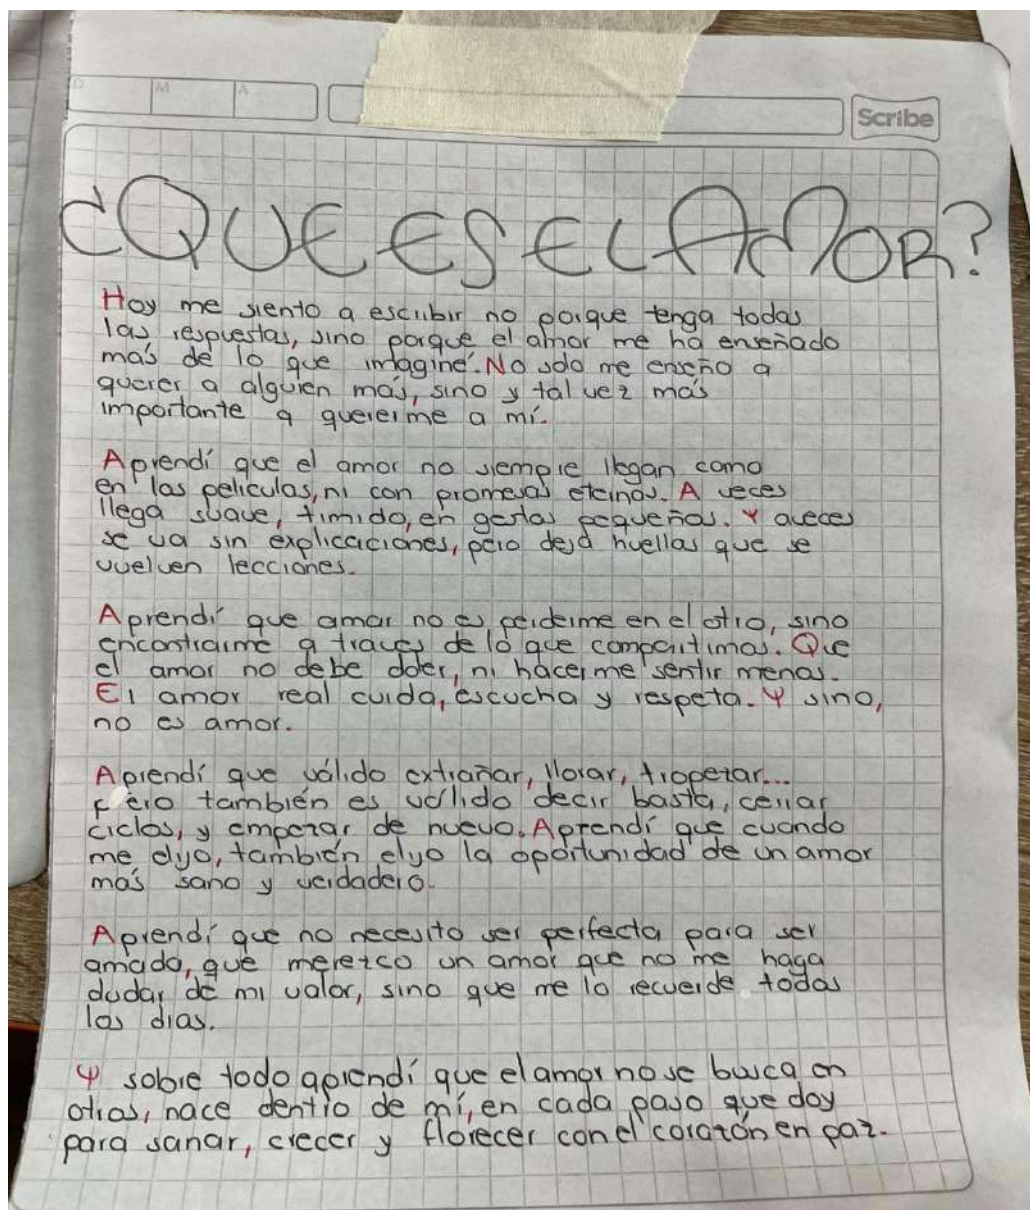 D M A
Scribe
¿QUE ES EL AMOR?
Hoy me siento a escribir no porque tenga todas
las respuestas, sino porque el amor me ha enseñado
más de lo que imaginé. No solo me enseño a
querer a alguien más, sino y tal vez más
importante a quererme a mí.
Aprendí que el amor no siempre llegan como
en las películas, ni con promesas eternas. A veces
llega suave, timido, en gestos pequeños. Y aveces
se va sin explicaciones, pero deja huellas que se
vuelven lecciones.
Aprendí que amar no es perderme en el otro, sino
encontrarme a traves de lo que compartimos. Que
el amor no debe doler, ni hacerme sentir menos.
El amor real cuida, escucha y respeta. Y sino,
no es amor.
Aprendí que válido extrañar, llorar, tropezar...
Pero también es válido decir basta, cerrar
ciclos, y empezar de nuevo. Aprendí que cuando
me elijo, también elijo la oportunidad de un amor
más sano y verdadero.
Aprendí que no necesito ser perfecta para ser
amada, que merezco un amor que no me haga
dudar de mi valor, sino que me lo recuerde todos
los dias.
Y sobre todo aprendí que el amor no se busca en
otros, nace dentro de mí, en cada paso que doy
para sanar, crecer y florecer con el corazón en paz.